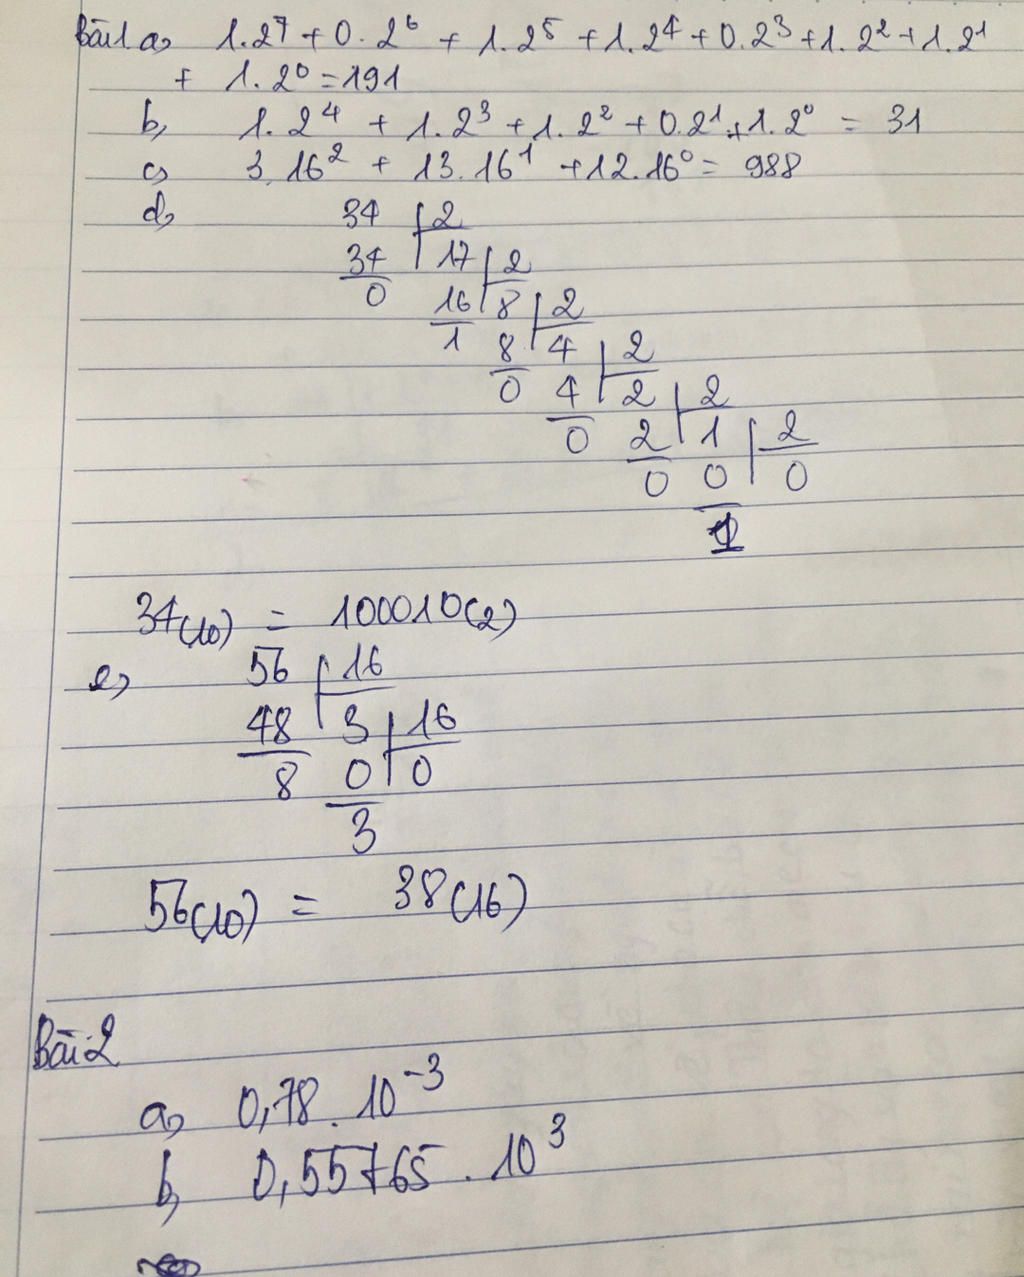 Bài 1 a, 1.2⁷ + 0.2⁶ + 1.2⁵ + 1.2⁴ + 0.2³ + 1.2² + 1.2¹
+ 1.2⁰ = 191
b, 1.2⁴ + 1.2³ + 1.2² + 0.2¹ + 1.2⁰ = 31
c, 3.16² + 13.16¹ + 12.16⁰ = 988
d, 34 2
34 17 2
0 16 8 2
1 8 4 2
0 4 2 2
0 2 1 2
0 0 0
1
34(10) = 100010(2)
e, 56 16
48 3 16
8 0 0
3
56(10) = 38(16)
Bài 2
a, 0,78.10⁻³
b, 0,55765.10³